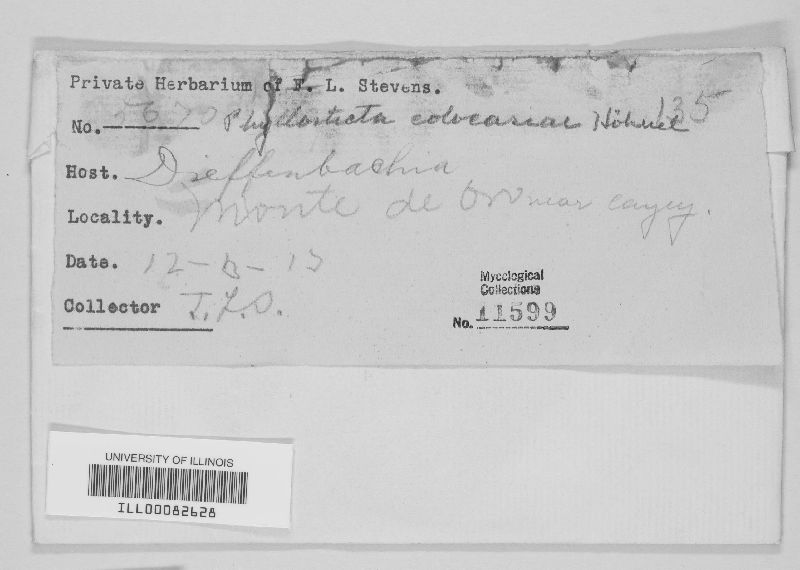 Private Herbarium of F. L. Stevens.
No. 5670 Phyllosticta colocasiae Höhnel 135
Host. Dieffenbachia
Locality. Monte de Oro near cayey.
Date. 12-
Collector
Mycological
Collections
No. 11599
UNIVERSITY OF ILLINOIS
ILL00082628